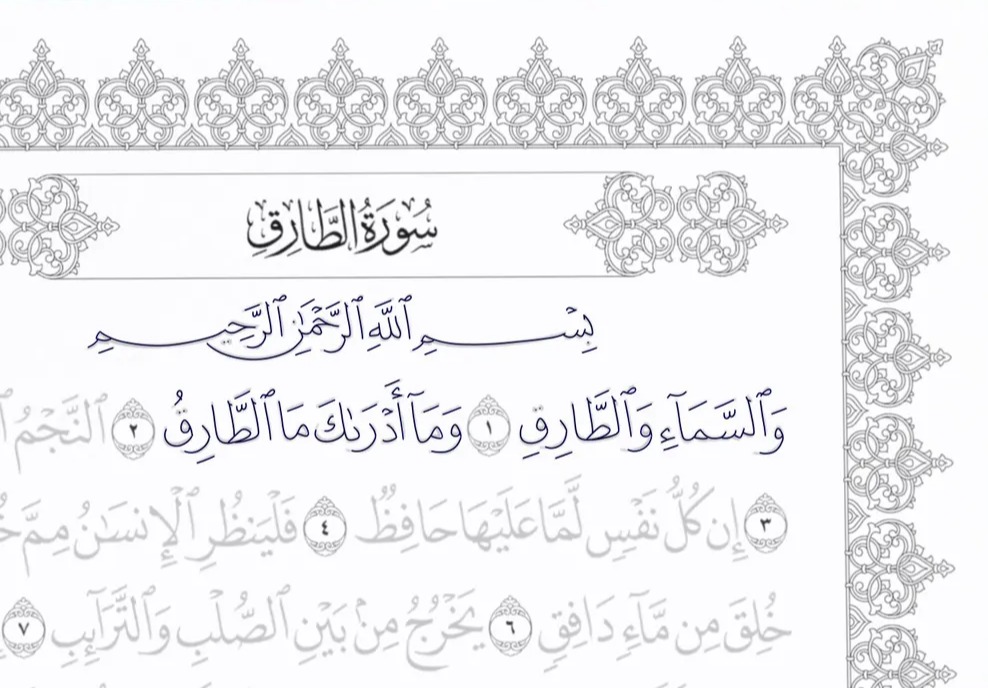 سُورَةُ الطَّارِقِ
بِسْمِ ٱللَّهِ ٱلرَّحْمَٰنِ ٱلرَّحِيمِ
وَٱلسَّمَآءِ وَٱلطَّارِقِ ١ وَمَآ أَدْرَىٰكَ مَا ٱلطَّارِقُ ٢ ٱلنَّجْمُ
٣ إِن كُلُّ نَفْسٍ لَّمَّا عَلَيْهَا حَافِظٌ ٤ فَلْيَنظُرِ ٱلْإِنسَٰنُ مِمَّ
خُلِقَ مِن مَّآءٍ دَافِقٍ ٦ يَخْرُجُ مِنۢ بَيْنِ ٱلصُّلْبِ وَٱلتَّرَآئِبِ ٧